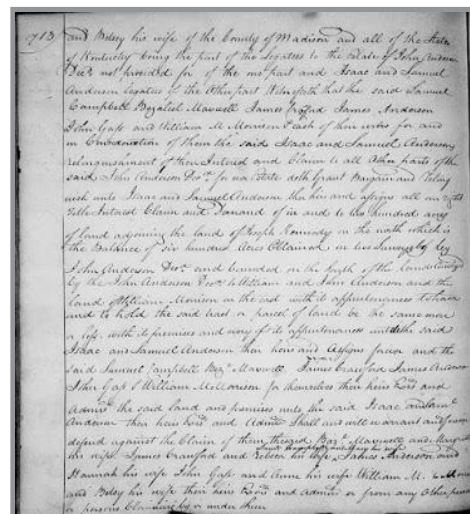 713
and Betsy his wife of the County of Madison and all of the State
of Kentucky being the part of the Legatees to the Estate of John Anderson
Decd. not provided for of the one part and Isaac and Samuel
Anderson legatees of the Other part Witnesseth that the said Samuel
Campbell Bazaleel Maxwell James James Anderson
John Gass and William M Morrison each of their wives for and
in Consideration of them the said Isaac and Samuel Andersons
relinquishment of their Interest and Claim to all Other parts of the
said John Anderson Decd. Estate doth Grant Bargain and Relinq
uish unto Isaac and Samuel Anderson their heirs and assigns all our right
Title Interest Claim and Demand of in and to two hundred acres
of land adjoining the land of Joseph Kennedy on the north which is
the Balance of six hundred Acres Obtained in two Surveys by
John Anderson Decd. and bounded on the South of the land
by the John Anderson Decd. to William and John Anderson and the
land of William Morrison on the east with its appurtenances to have
and to hold the said tract or parcel of land be the same more
or less with its premises and every of its appurtenances unto the said
Isaac and Samuel Anderson their heirs and Assigns forever and the
said Samuel Campbell Bazl. Maxwell James Crawford James Anderson
John Gass & William M Morrison for themselves their heirs Exrs and
Admrs the said land and premises unto the said Isaac and Saml.
Anderson their heirs Exrs. and Admrs Shall and will warrant and forever
defend against the Claim of them the said Bazl. Maxwell and Margaret
his wife Samuel Campbell and his wife
James Crawford and Rebecca his wife James Anderson and
Hannah his wife John Gass and Anne his wife William M.
and Betsy his wife their heirs Exrs and Admrs or from any Other person
or persons Claiming by or under them